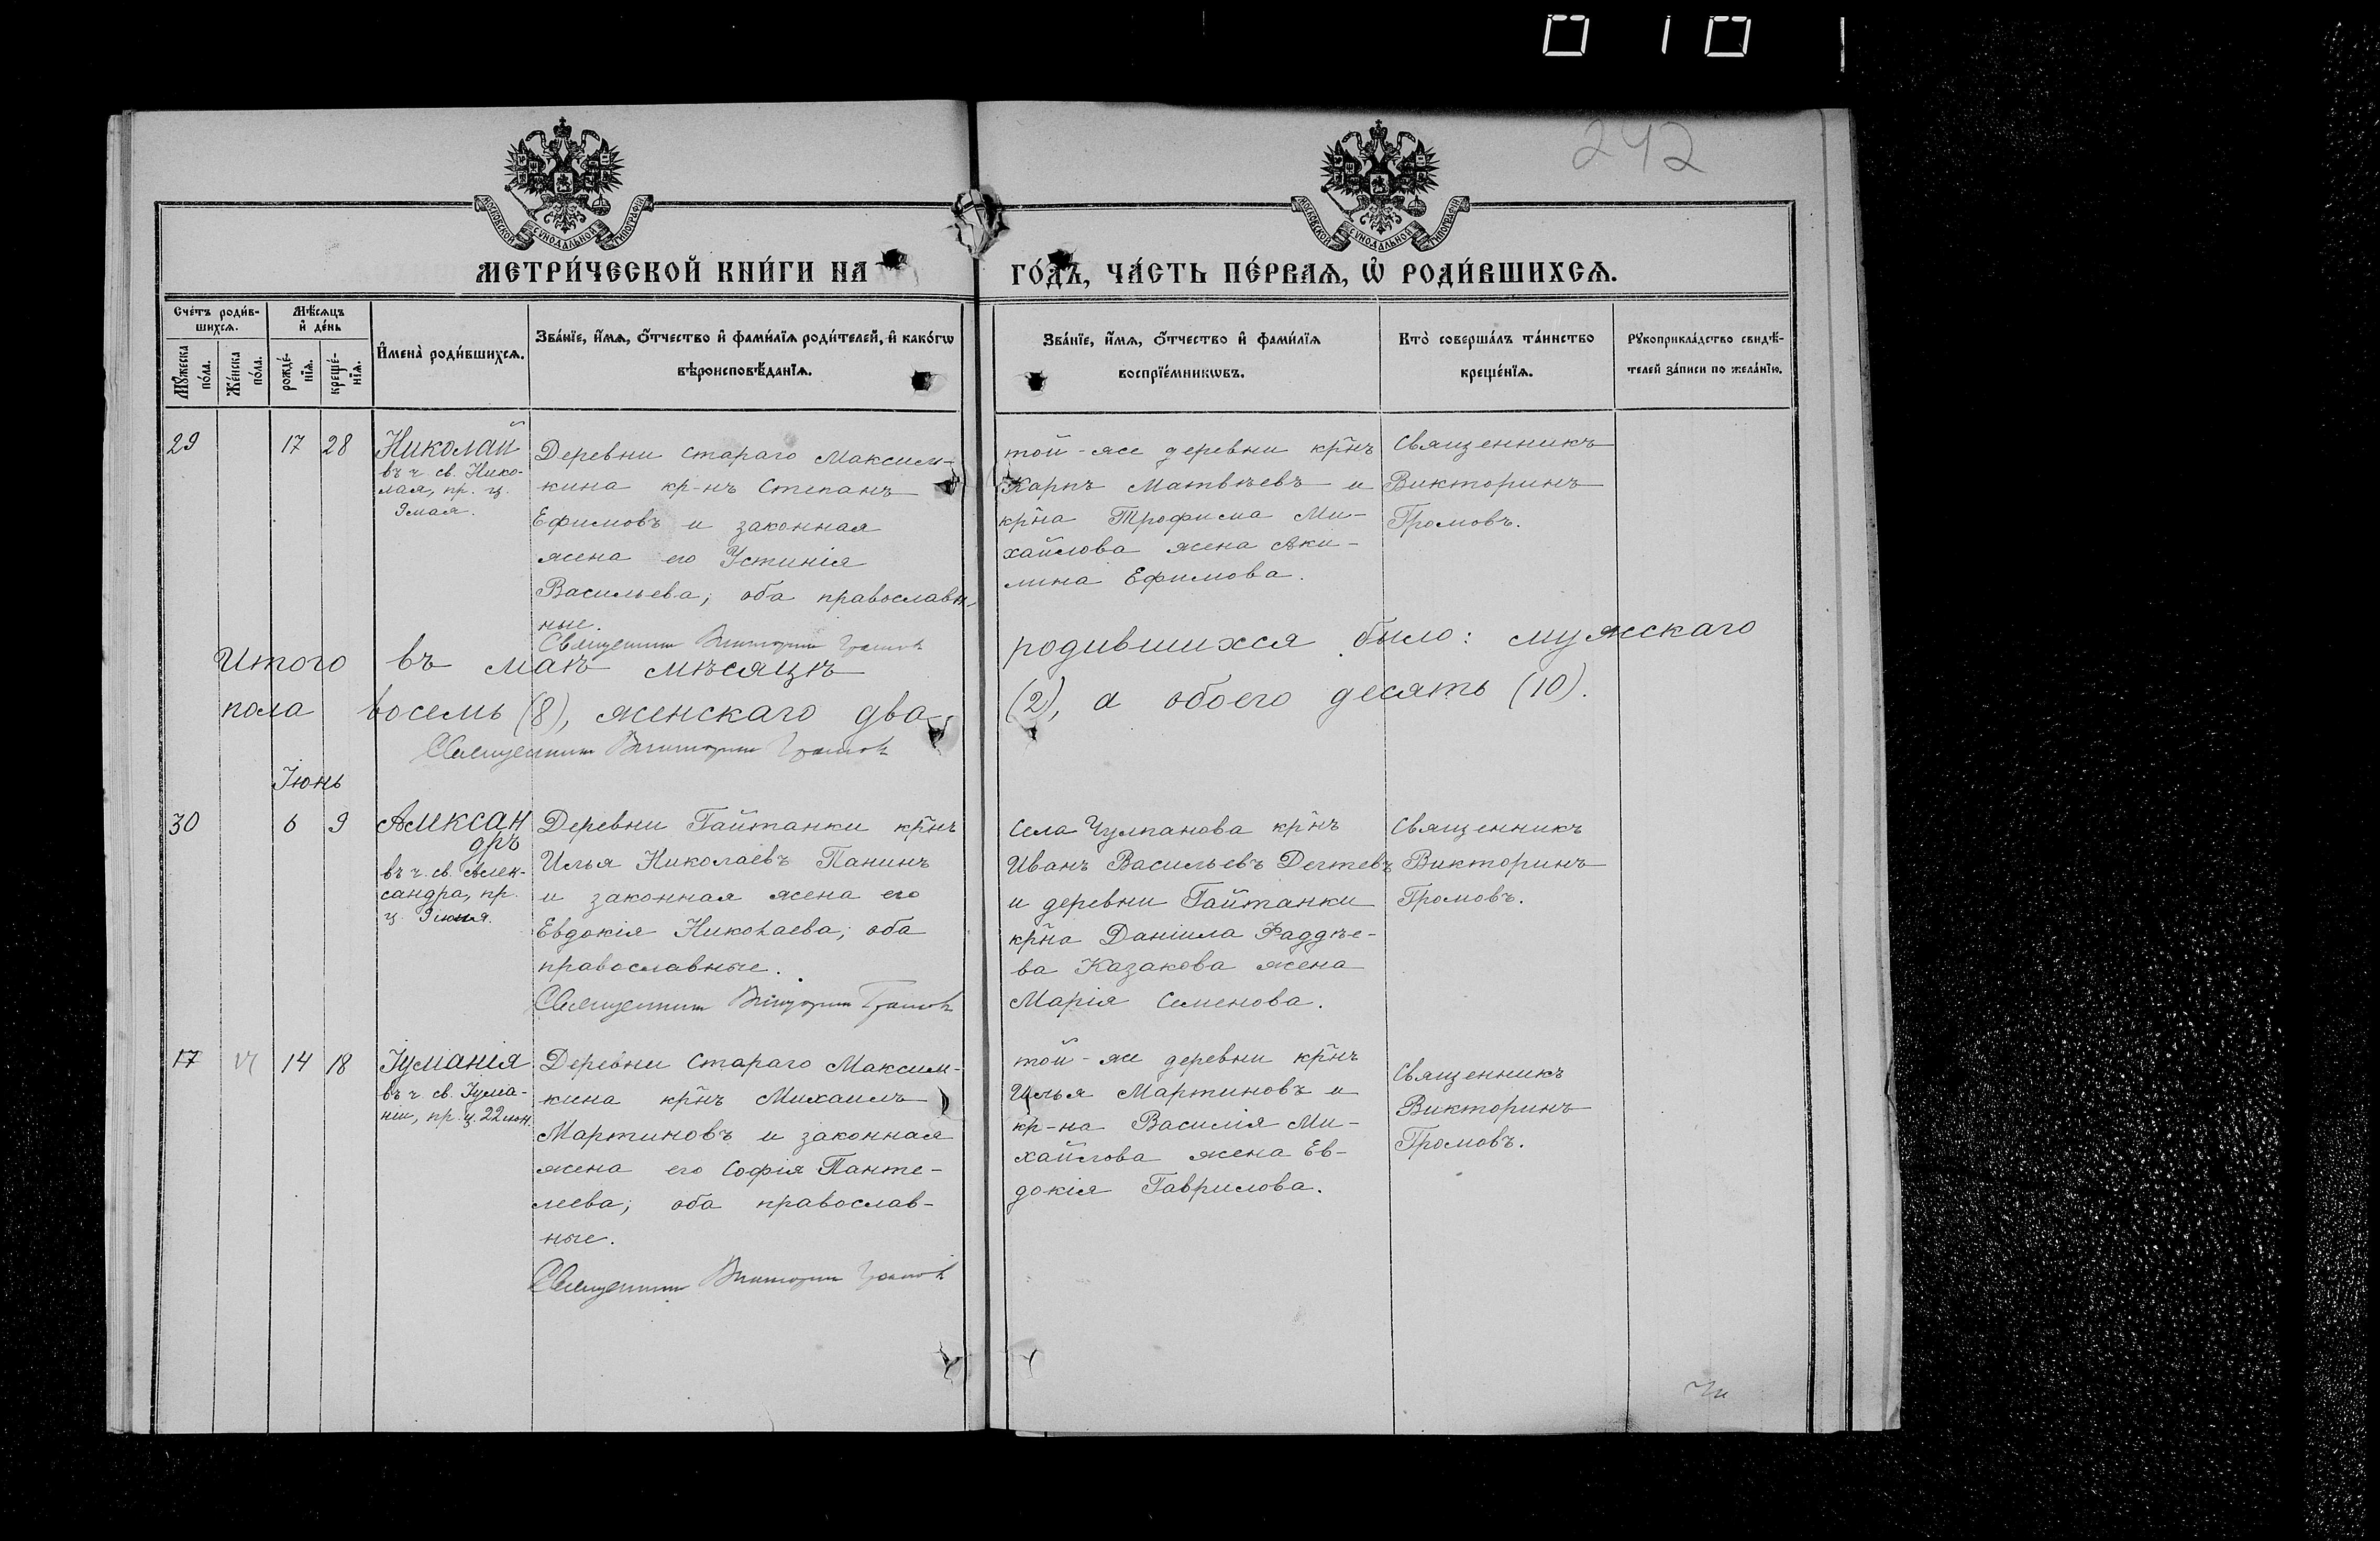 242
МОСКОВСКОЙ СѴНОДАЛЬНОЙ ТИПОГРАФІИ
МОСКОВСКОЙ СѴНОДАЛЬНОЙ ТИПОГРАФІИ
МЕТРИ́ЧЕСКОЙ КНИ́ГИ НА ГО́ДЪ, ЧА́СТЬ ПЕ́РВАѦ, Ѡ҆ РОДИ́ВШИХСѦ.
Сче́тъ роди́в-
шихсѧ.
Мꙋ́жеска по́ла.
Же́нска по́ла.
Мѣ́сѧцъ
и҆ де́нь
рожде́-
нїѧ.
креще́-
нїѧ.
И҆мена̀ роди́вшихсѧ.
Зва́нїе, и҆́мѧ, ѻ҆́тчество и҆ фами́лїѧ роди́телей, и҆ како́гѡ
вѣроисповѣ́данїѧ.
Зва́нїе, и҆́мѧ, ѻ҆́тчество и҆ фами́лїѧ
воспрїе́мникѡвъ.
Кто̀ соверша́лъ та́инство
креще́нїѧ.
Рꙋкоприкла́дство свидѣ́-
телей за́писи по жела́нїю.
29 17 28
Николай
въ ч. св. Нико-
лая, пр. ц.
9 мая.
Деревни Стараго Максим-
кина кр-нъ Степанъ
Ефимовъ и законная
жена его Устинія
Васильева; оба православ-
ные.
Священникъ Викторинъ Громовъ
той-же деревни кр̃нъ
Карпъ Матвѣевъ и
кр̃на Трофима Ми-
хайлова жена Аки-
лина Ефимова.
Священникъ
Викторинъ
Громовъ.
Итого въ маѣ мѣсяцѣ родившихся было: мужскаго
пола восемь (8), женскаго два (2), а обоего десять (10).
Священникъ Викторинъ Громовъ
Іюнь
30 6 9
Алексан
дръ
въ ч. св. Алек-
сандра, пр.
ц. 9 іюня.
Деревни Гайтанки кр̃нъ
Илья Николаевъ Панинъ
и законная жена его
Евдокія Николаева; оба
православные.
Священникъ Викторинъ Громовъ
Села Чулпанова кр̃нъ
Иванъ Васильевъ Дегтевъ
и деревни Гайтанки
кр̃на Даніила Фаддѣе-
ва Казакова жена
Марія Семенова.
Священникъ
Викторинъ
Громовъ.
17 14 18
Іуліанія
въ ч. св. Іулiа-
ніи, пр. ц. 22 іюн.
Деревни Стараго Максим-
кина кр̃нъ Михаилъ
Мартиновъ и законная
жена его Софія Панте-
леева; оба православ-
ные.
Священникъ Викторинъ Громовъ
той-же деревни кр̃нъ
Илья Мартиновъ и
кр-на Василія Ми-
хайлова жена Ев-
докія Гаврилова.
Священникъ
Викторинъ
Громовъ.